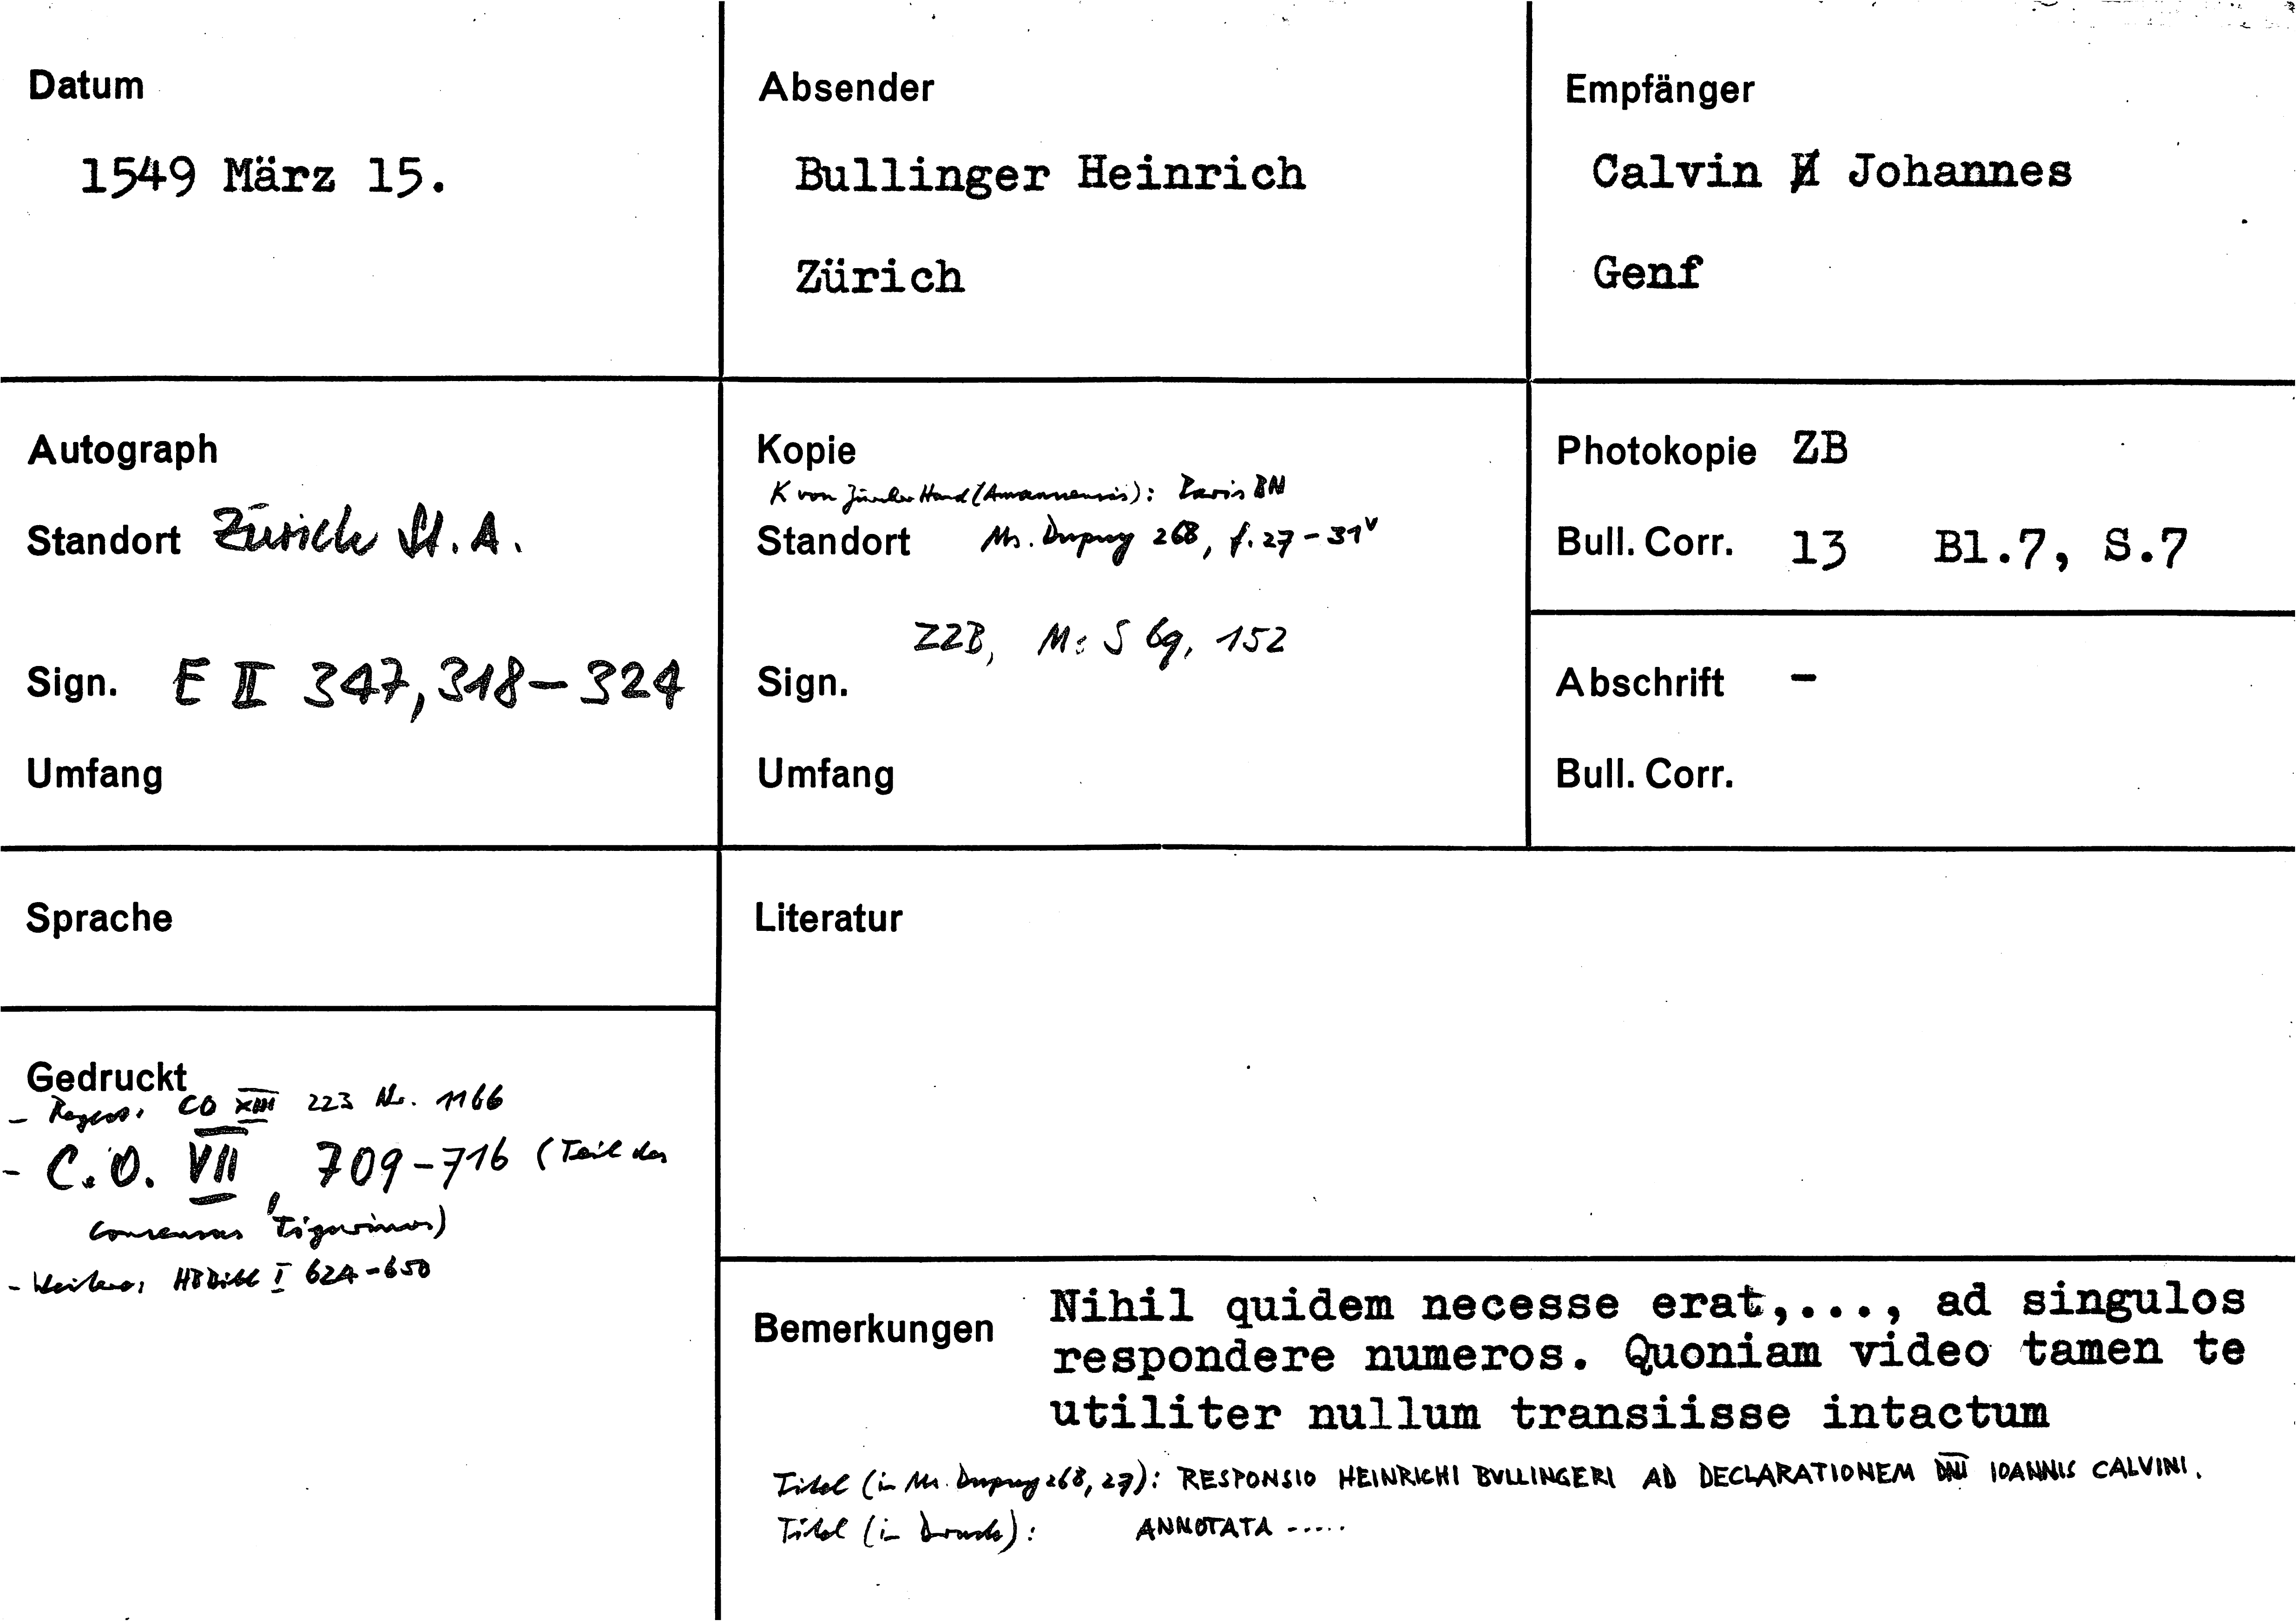 Datum
1549 März 15.
Absender
Bullinger Heinrich
Zürich
Empfänger
Calvin Johannes
Genf
Autograph
Standort Zürich St. A.
Sign. E II 347, 318-324
Umfang
Kopie
K von Zürcher Hand (Amanuensis): Paris BN
Standort Ms. Dupuy 268, f. 27-31v
ZZB, Ms S 69, 152
Sign.
Umfang
Photokopie ZB
Bull. Corr. 13 Bl.7, S.7
Abschrift -
Bull. Corr.
Sprache
Literatur
Gedruckt
- Regest: CO XIII 223 Nr. 1166
- C.O. VII, 709-716 (Teil des
Consensus Tigurinus)
- Weiteres: HBBibl I 624-650
Bemerkungen
Nihil quidem necesse erat,..., ad singulos
respondere numeros. Quoniam video tamen te
utiliter nullum transiisse intactum
Titel (in Ms. Dupuy 268, 27): RESPONSIO HEINRICHI BVLLINGERI AD DECLARATIONEM DNI IOANNIS CALVINI.
Titel (in Druck): ANNOTATA .....